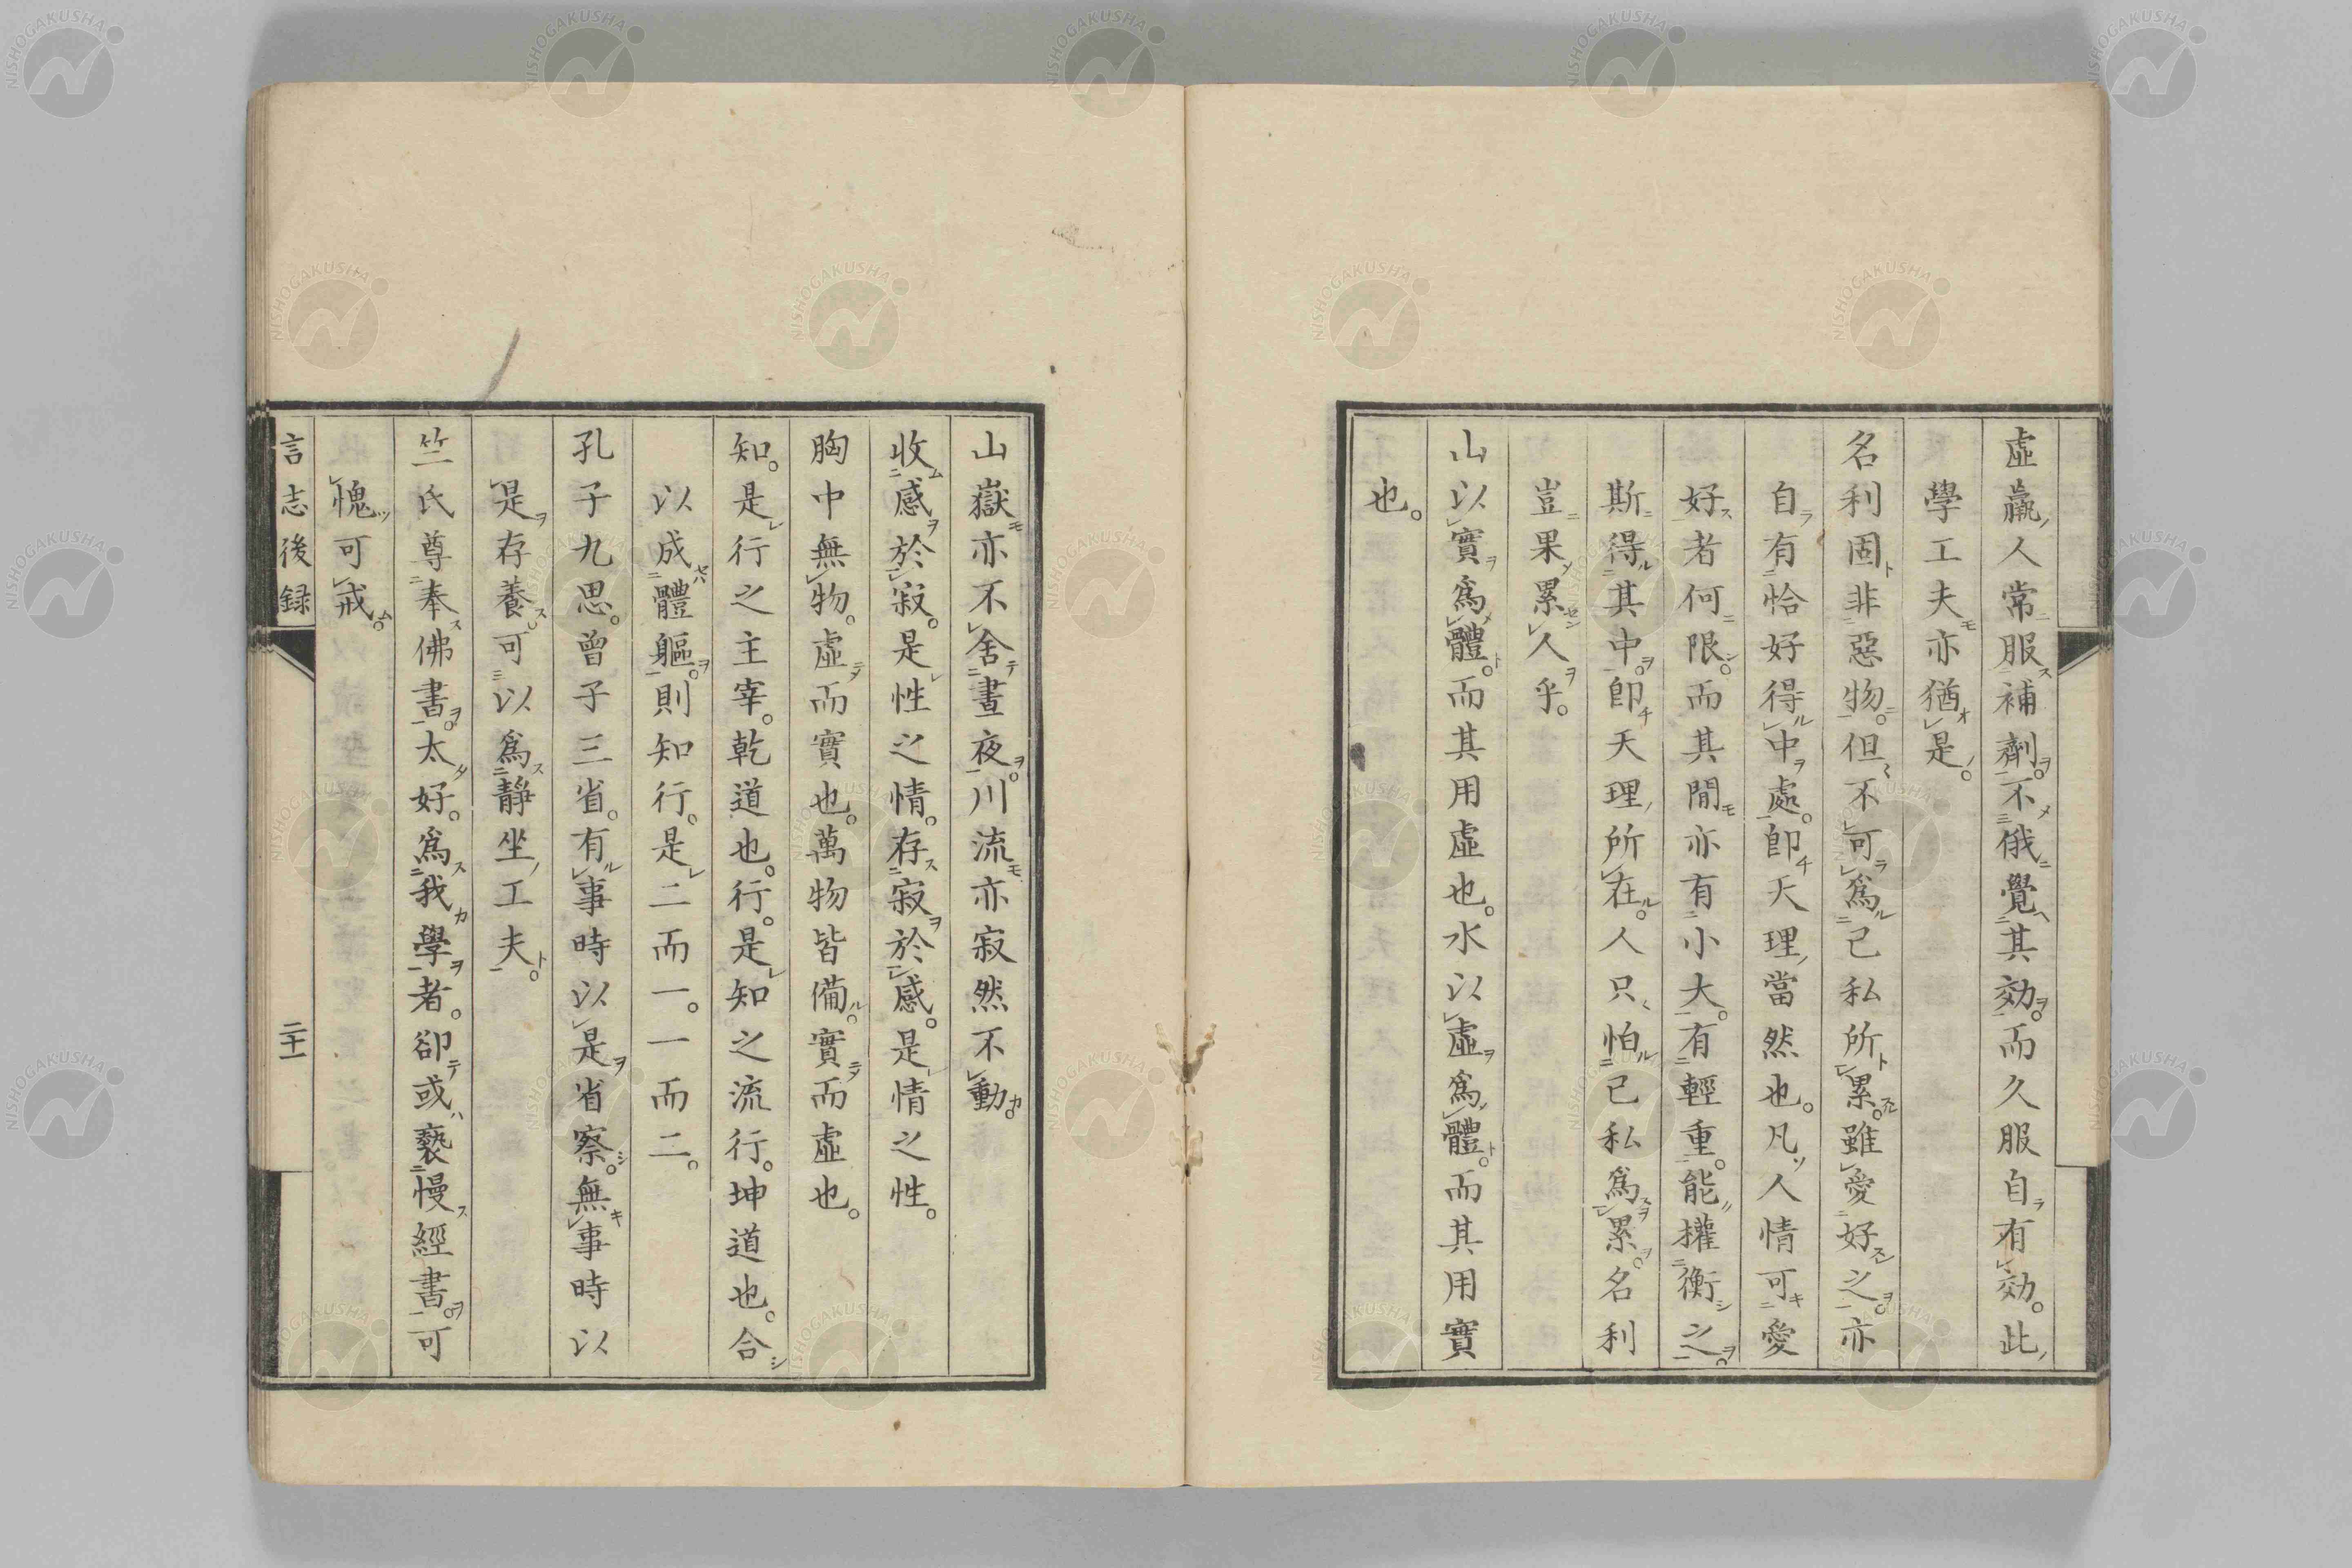 虛羸人常服補劑。不俄覺其効。而久服自有効。此
學工夫亦猶是。
名利固非惡物。但不可爲己私所累。雖愛好之。亦
自有恰好得中處。卽天理當然也。凡人情可愛
好者何限。而其間亦有小大。有輕重。能權衡之。
斯得其中。卽天理所在。人只怕己私爲累。名利
豈果累人乎。
山以實爲體。而其用虛也。水以虛爲體。而其用實
也。
山嶽亦不舍晝夜。川流亦寂然不動。
收感於寂。是性之情。存寂於感。是情之性。
胸中無物。虛而實也。萬物皆備。實而虛也。
知。是行之主宰。乾道也。行。是知之流行。坤道也。合
以成體軀。則知行。是二而一。一而二。
孔子九思。曾子三省。有事時以是省察。無事時以
是存養。可以爲靜坐工夫。
竺氏尊奉佛書。太好。爲我學者。卻或褻慢經書。可
愧可戒。
言志後録
二十一
NISHOGAKUSHA